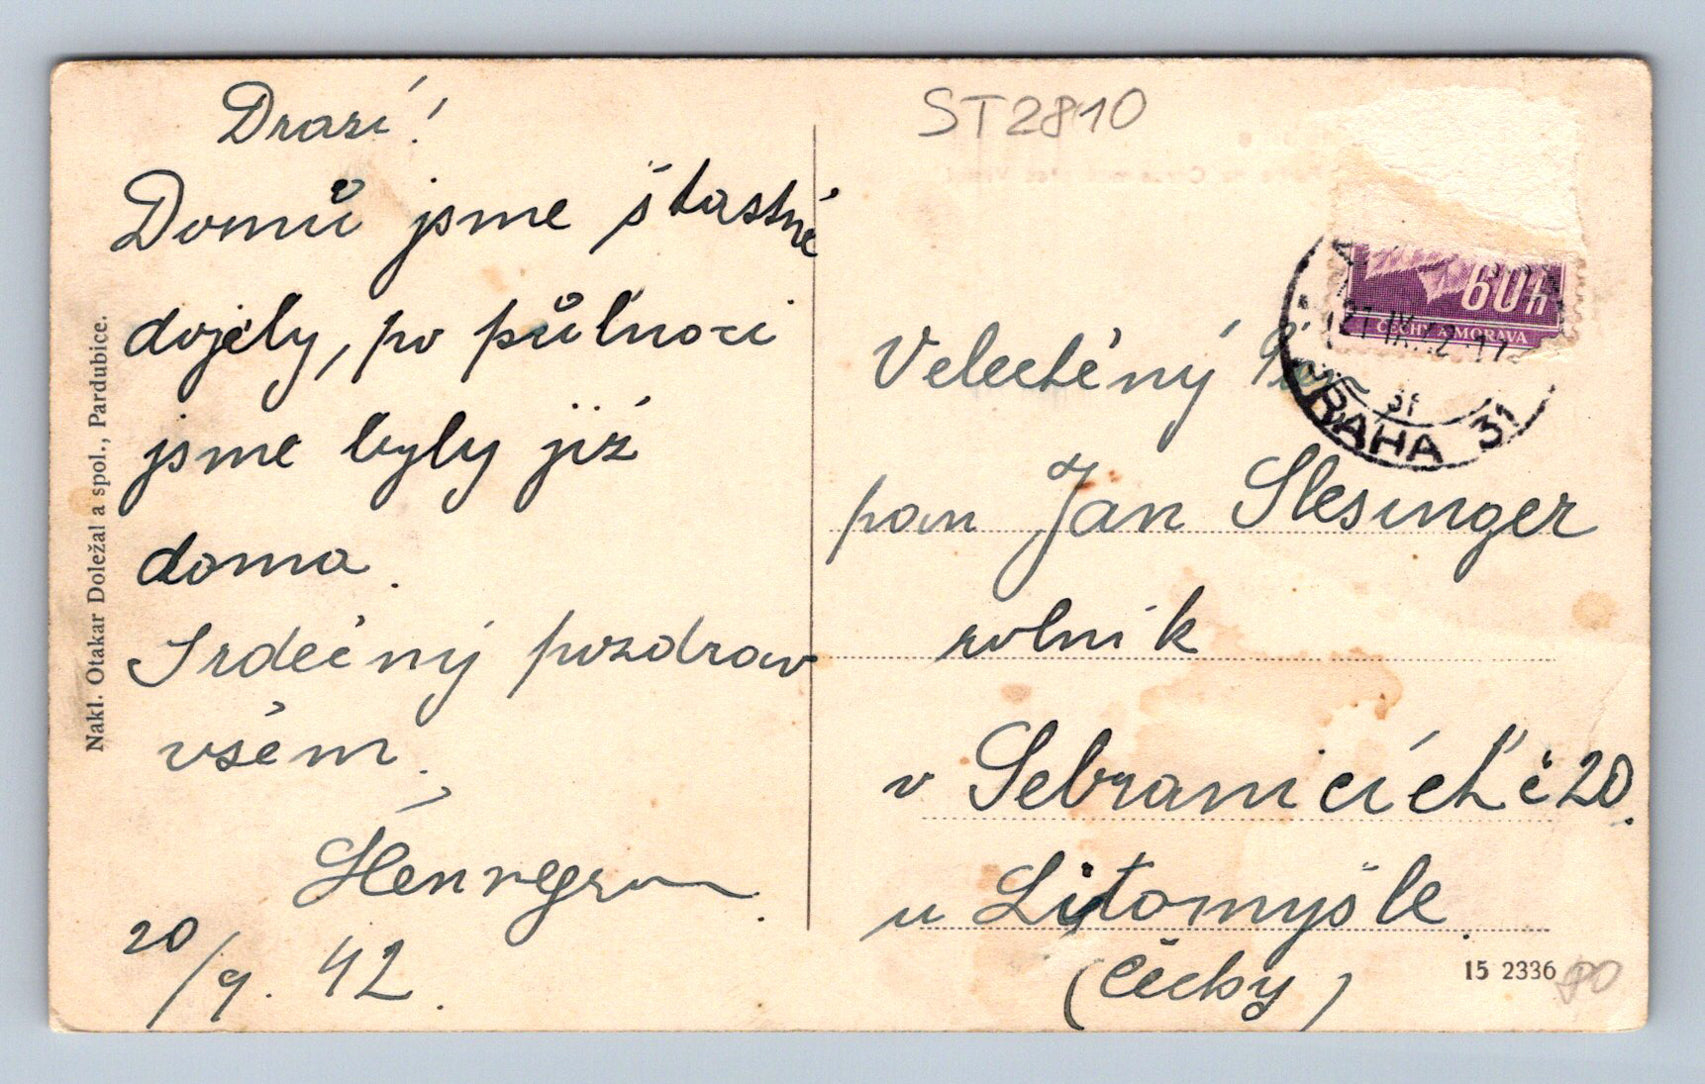 Drazí!
Domů jsme štastně
dojely, po půlnoci
jsme byly již
doma.
Srdečný pozdrav
všem.
20/9. 42.
Nakl. Otakar Doležal a spol., Pardubice.
ST2810
60h
ČECHY A MORAVA
21 IX. 42
31
PRAHA 31
Velectěný
pan Jan Slesinger
rolník
v Sebranicích č 20.
u Litomyšle.
(Čechy)
15 2336